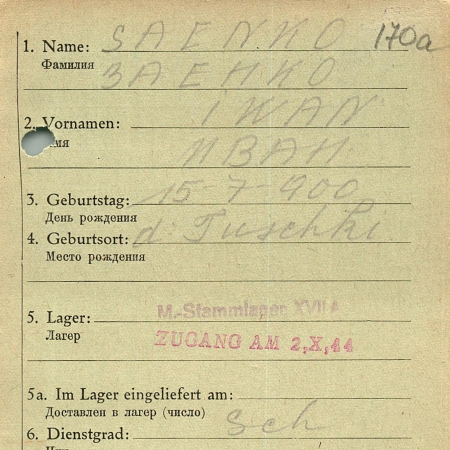 1. Name: SAENKO 170a
Фамилия ЗАЕНКО
2. Vornamen: IWAN
Имя ИВАН
3. Geburtstag: 15-7-900
День рождения
4. Geburtsort: d. Tuschki
Место рождения
5. Lager: M.-Stammlager XVII A
Лагер ZUGANG AM 2,X,44
5a. Im Lager eingeliefert am:
Доставлен в лагер (число)
6. Dienstgrad: Sch